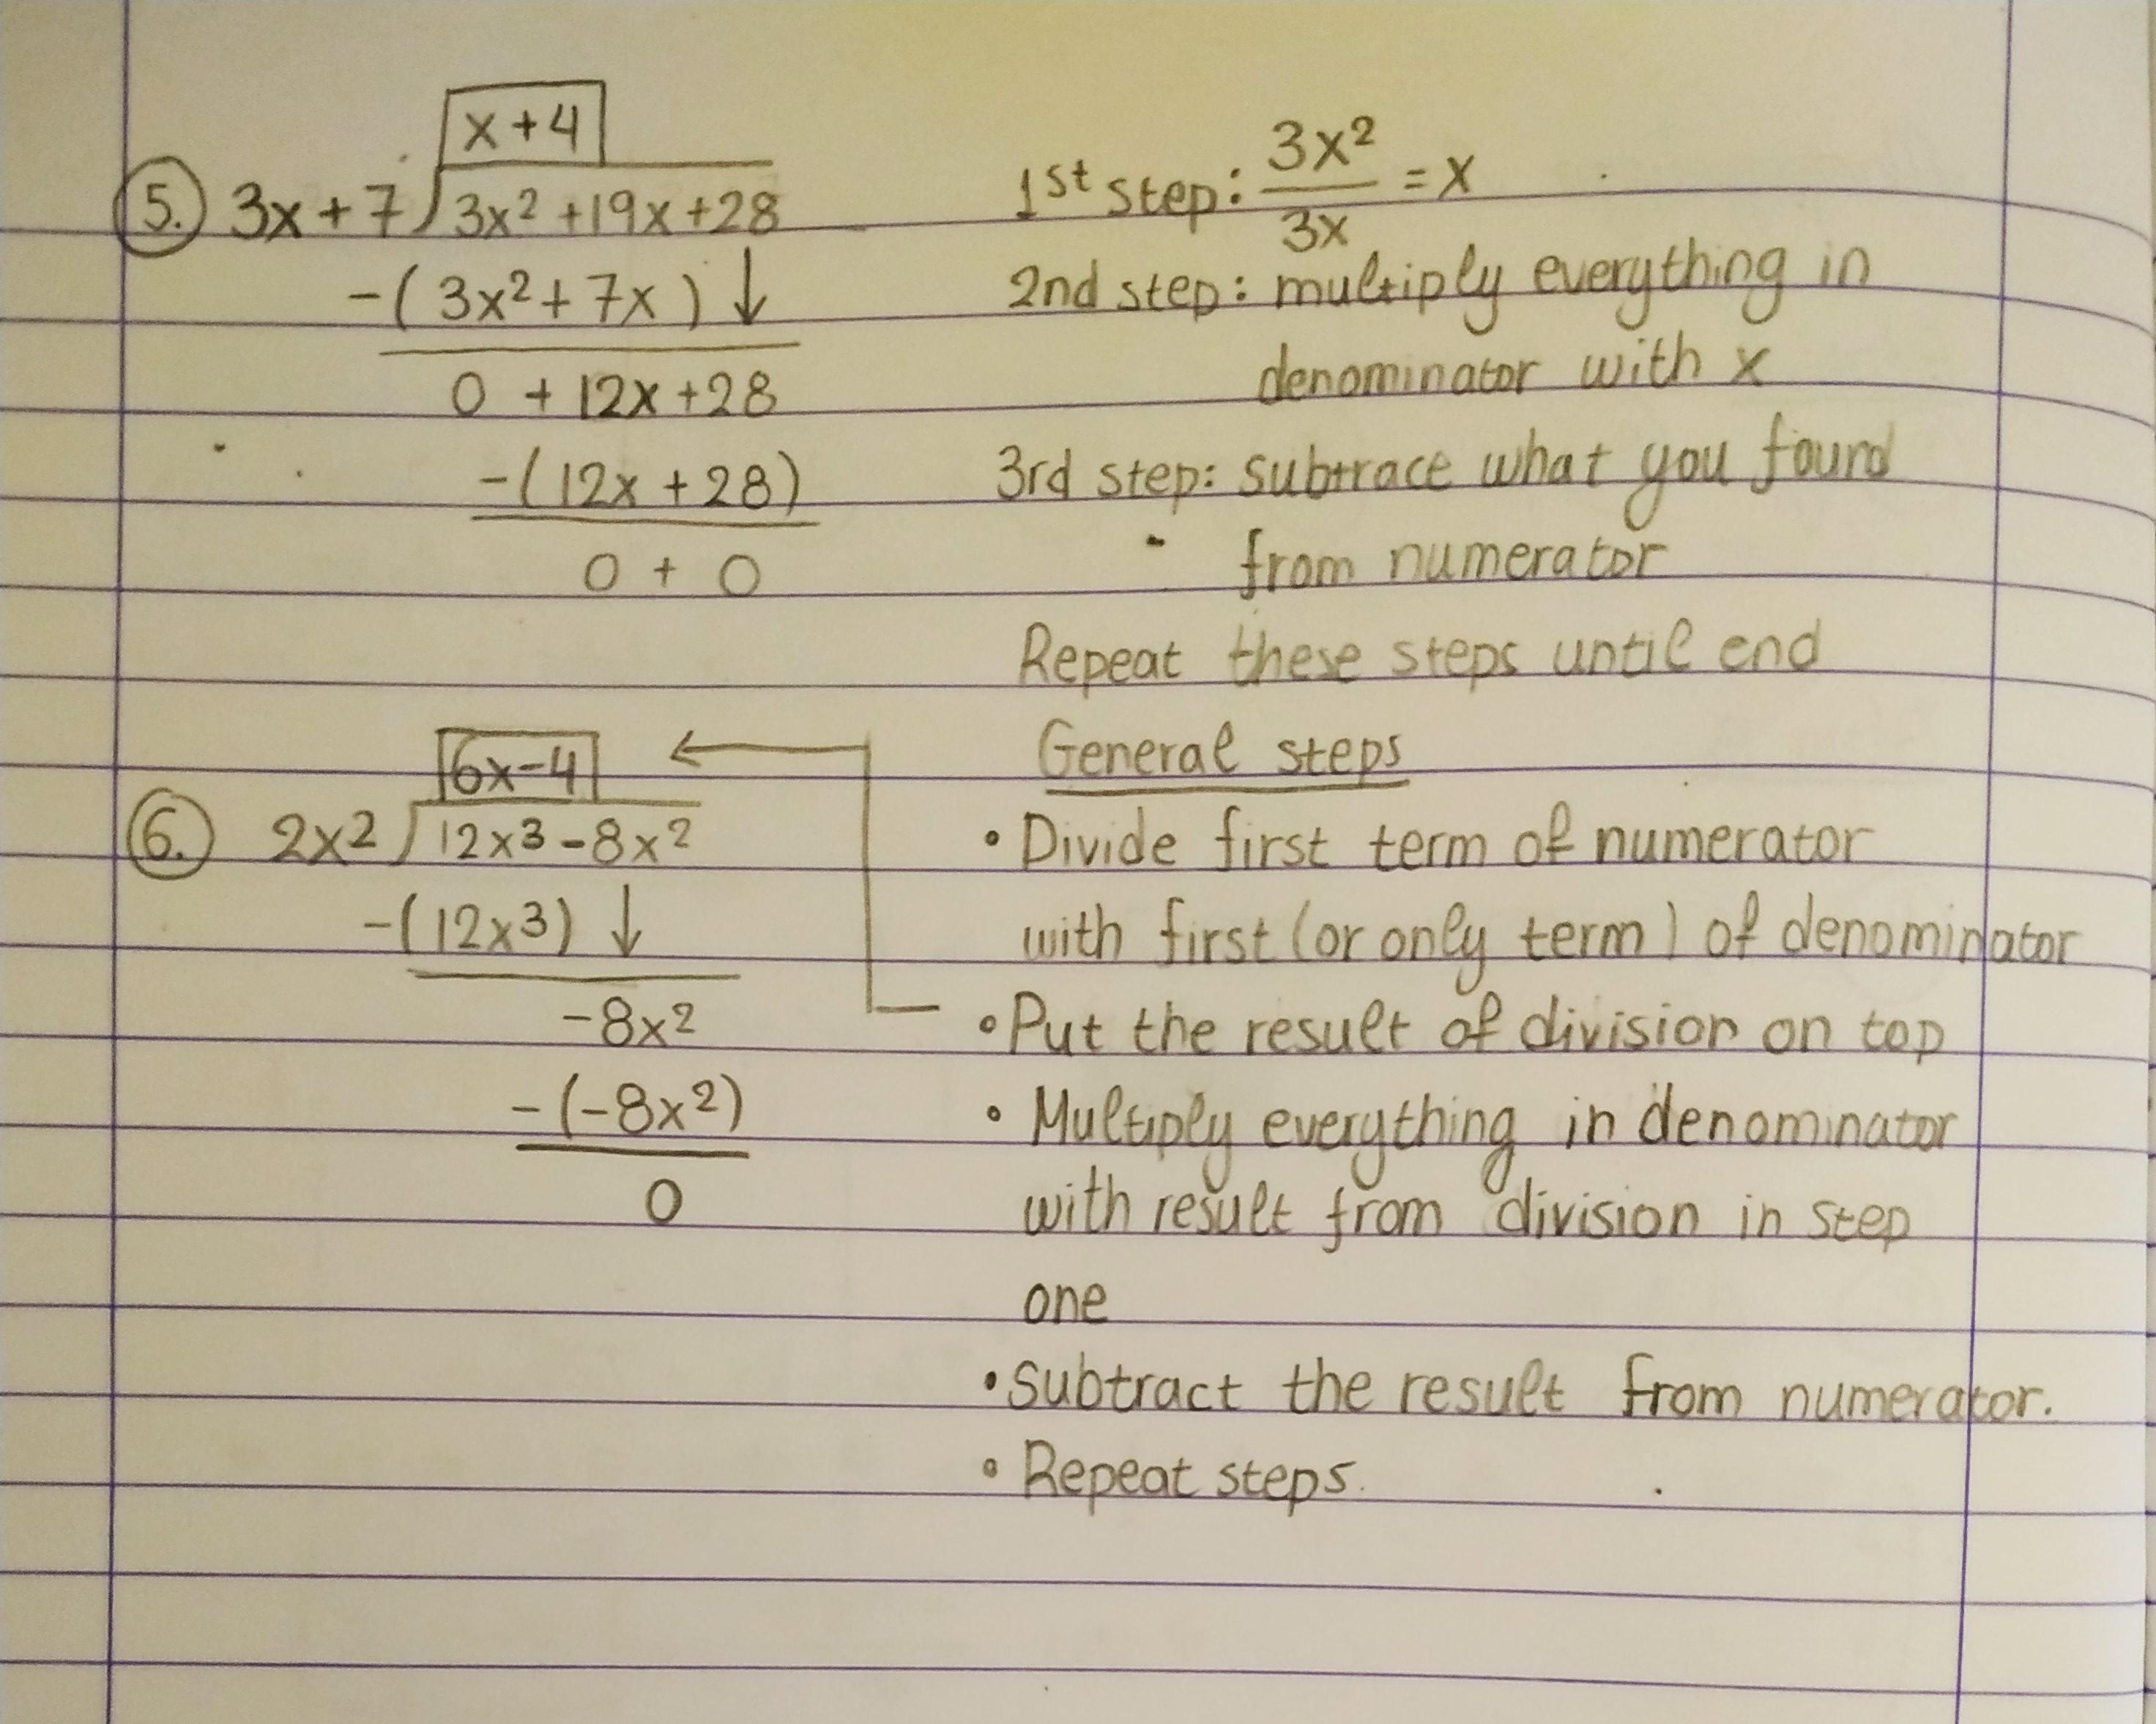 x+4
5. 3x+7 ) 3x² +19x+28
-( 3x²+7x ) ↓
0 + 12x+28
-(12x+28)
0 + 0
1st step: 3x²/3x = x
2nd step: multiply everything in
denominator with x
3rd step: subtrace what you found
from numerator
Repeat these steps until end
6x-4 ←
6. 2x² ) 12x³-8x²
-(12x³) ↓
-8x²
-(-8x²)
0
General steps
• Divide first term of numerator
with first (or only term) of denominator
• Put the result of division on top
• Multiply everything in denominator
with result from division in step
one
• Subtract the result from numerator.
• Repeat steps.